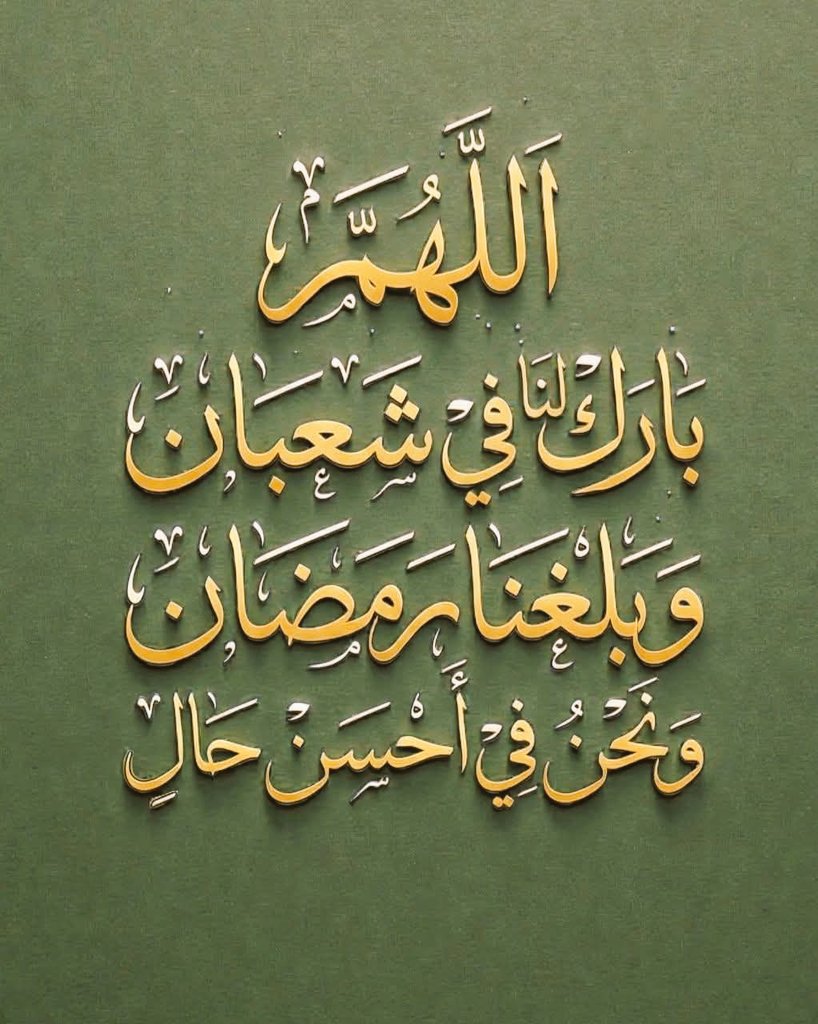 اَللَّهُمَّ
بَارَك لنَا فِي شَعبَان
وَبَلغنَا رَمَضَان
وَنَحْنُ فِي أَحْسَن حَالٍ